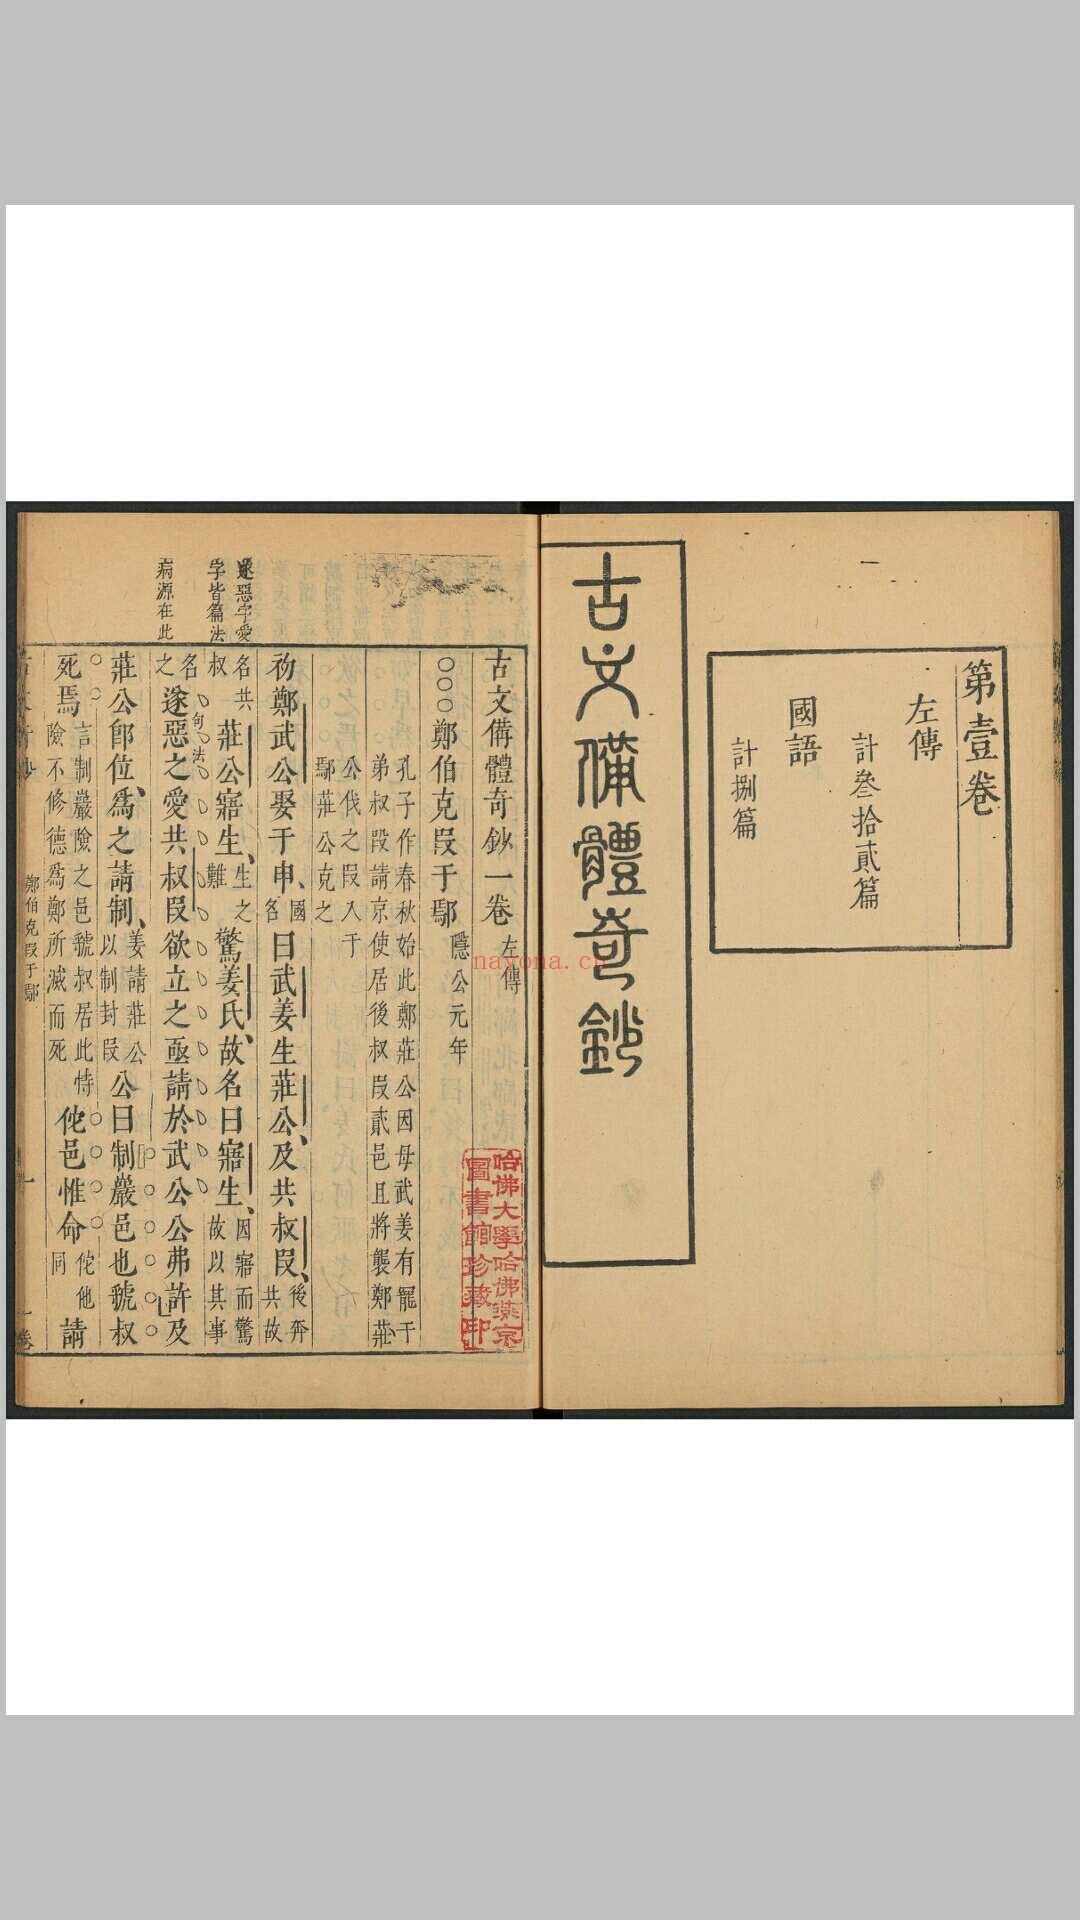 第壹卷
左傳
計叄拾貳篇
國語
計捌篇
古文備體奇鈔
古文備體奇鈔一卷 左傳
○○○鄭伯克叚于鄢 隱公元年
孔子作春秋始此鄭莊公因母武姜有寵于
弟叔叚請京使居後叔叚貳邑且將襲鄭莊
公伐之叚入于
鄢莊公克之
初鄭武公娶于申國名曰武姜生莊公及共叔叚後奔共故
名共叔莊公寤生生之難驚姜氏故名曰寤生因寤而驚故以其事
名之遂惡之愛共叔叚欲立之亟請於武公公弗許及
莊公卽位爲之請制姜請莊公以制封叚公曰制巖邑也虢叔
死焉言制巖險之邑虢叔居此恃險不修德爲鄭所滅而死佗邑惟命佗他同請
遂惡字愛
字皆篇法
病源在此
句法
鄭伯克叚于鄢
一卷
哈佛大學哈佛燕京
圖書館珍藏印
nayona.cn